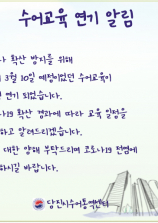 수어교육 연기 알림
확산 방지를 위해
3월 10일 예정이었던 수어교육이
연기 되었습니다.
확산 경과에 따라 교육 일정을
하고 알려드리겠습니다.
대한 양해 부탁드리며 코로나19 전염에
하시길 바랍니다.
당진시수어통역센터